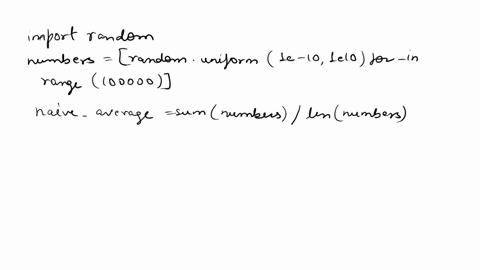 import random
numbers = [random.uniform (1e-10, 1e10) for _ in
range (100000)]
naive_average = sum(numbers) / len(numbers)